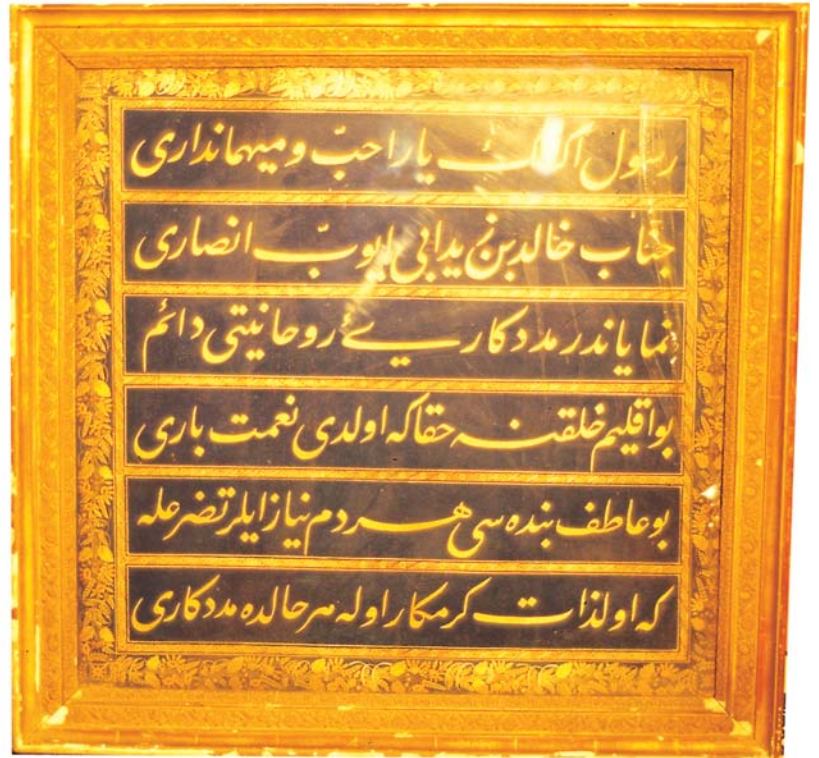 رسول اكرمك يار احبّ و ميهمانداری
جناب خالد بن زيد ابی ايوبّ انصاری
نماياندر مددكاریٔ روحانيتی دائم
بو اقليم خلقنه حقاكه اولدی نعمت باری
بو عاطف بنده سی هر دم نياز ايلر تضرعله
كه اول ذات كرمكار اوله هر حالده مددكاری